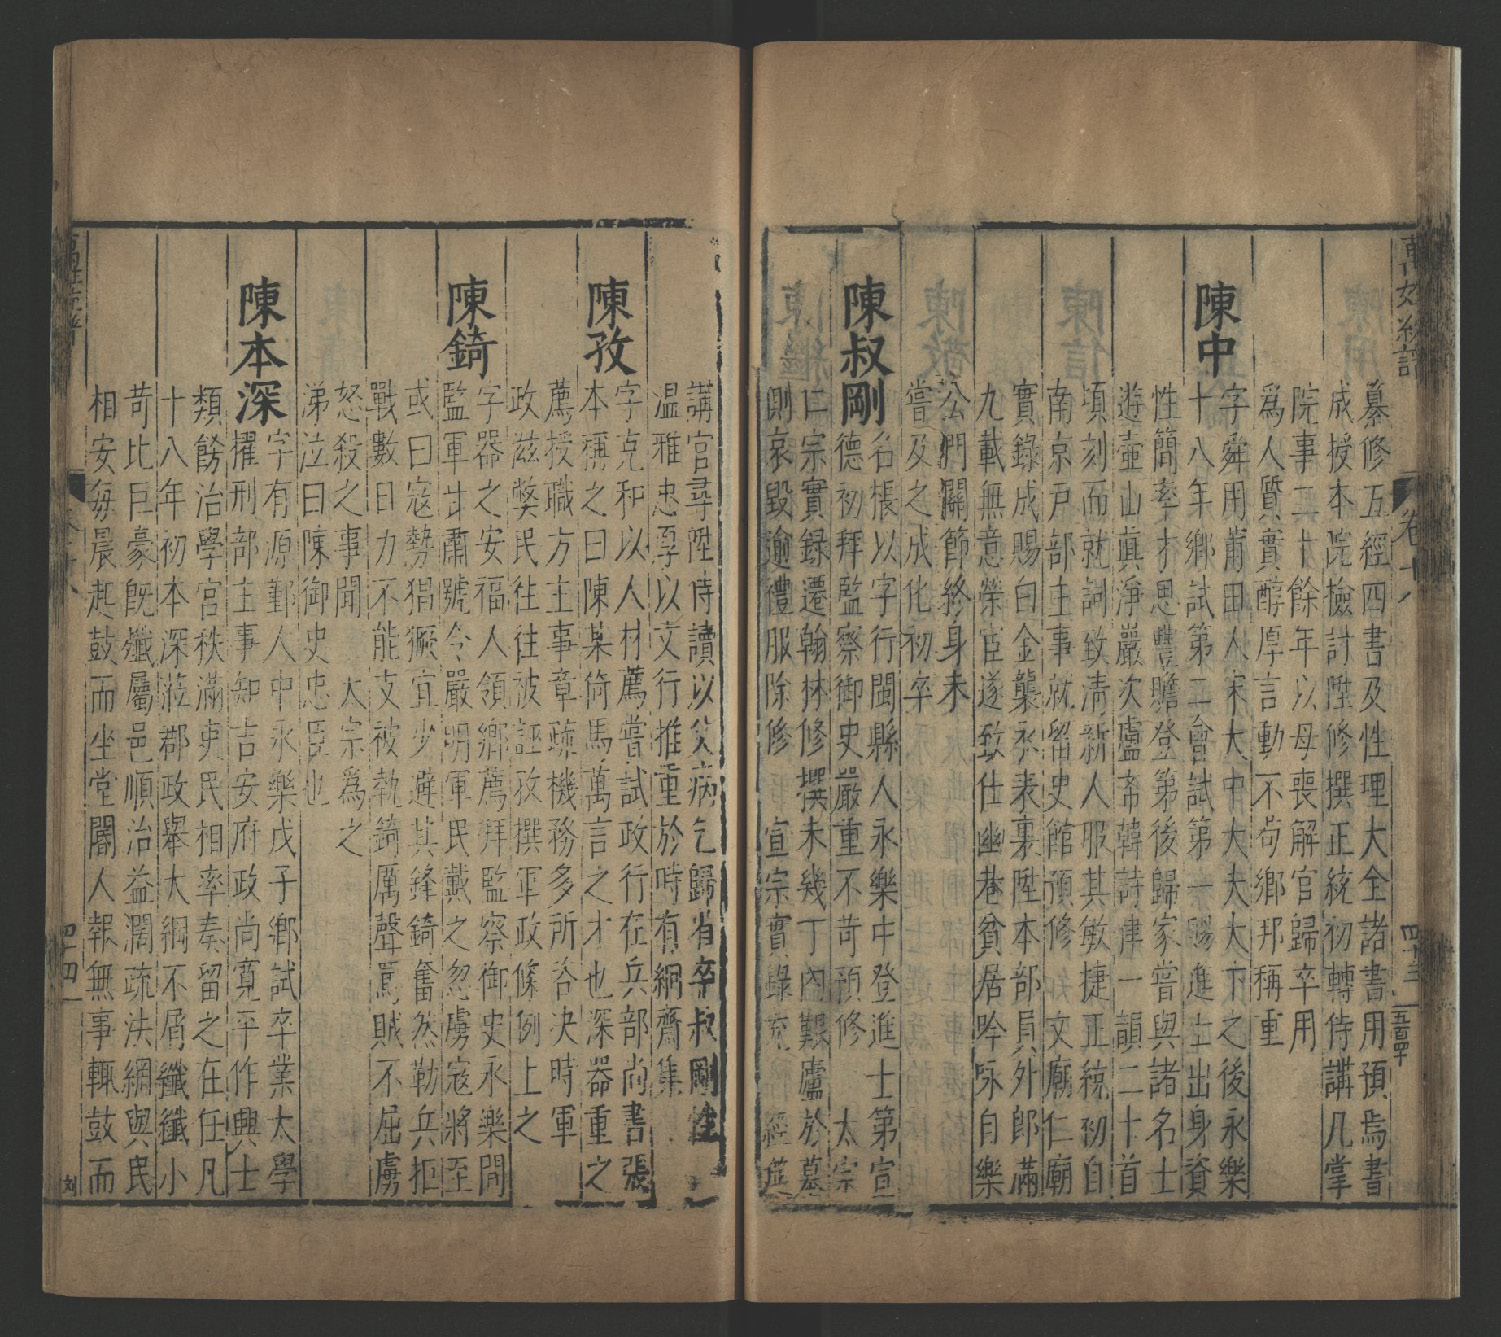 萬姓統譜
卷十八
四十三
五百四
纂修五經四書及性理大全諸書用預焉書
成授本院檢討陞修撰正統初轉侍講凡掌
院事二十餘年以母喪解官歸卒用
爲人質實醇厚言動不苟鄉邦稱重
陳中
字舜用莆田人宋大中大夫大卞之後永樂
十八年鄉試第二會試第一賜進士出身資
性簡率才思豐贍登第後歸家嘗與諸名士
遊壺山眞淨巖次盧帝韓詩律一韻二十首
頃刻而就詞致清新人服其敏捷正統初自
南京戸部主事就留史館預修文廟仁廟
實錄成賜白金襲衣表裏陞本部員外郎滿
九載無意榮宦遂致仕幽巷貧居吟咏自樂
公門關節終身未
嘗及之成化初卒
陳叔剛
名棖以字行閩縣人永樂中登進士第宣
德初拜監察御史嚴重不苛預修 太宗
仁宗實録遷翰林修撰未幾丁內艱廬於墓
側哀毀逾禮服除修 宣宗實錄充經筵
講官尋陞侍讀以父病乞歸省卒叔剛性
温雅忠厚以文行推重於時有絅齋集
陳孜
字克和以人材薦嘗試政行在兵部尚書張
本稱之曰陳某倚馬萬言之才也深器重之
薦授職方主事章疏機務多所咨決時軍
政滋獘民往往被誣孜撰軍政條例上之
陳錡
字器之安福人領鄉薦拜監察御史永樂間
監軍甘肅號令嚴明軍民戴之忽虜寇將至
或曰寇勢猖獗宜少避其鋒錡奮然勒兵拒
戰數日力不能支被執錡厲聲罵賊不屈虜
怒殺之事聞 太宗爲之
涕泣曰陳御史忠臣也
陳本深
字有源鄞人中永樂戊子鄉試卒業太學
擢刑部主事知吉安府政尚寛平作興士
類飭治學宮秩滿吏民相率奏留之在任凡
十八年初本深蒞郡政舉大綱不屑纖纖小
苛比巨豪旣殲屬邑順治益濶疏法網與民
相安每晨起鼓而坐堂閽人報無事輒鼓而
四十四
刘